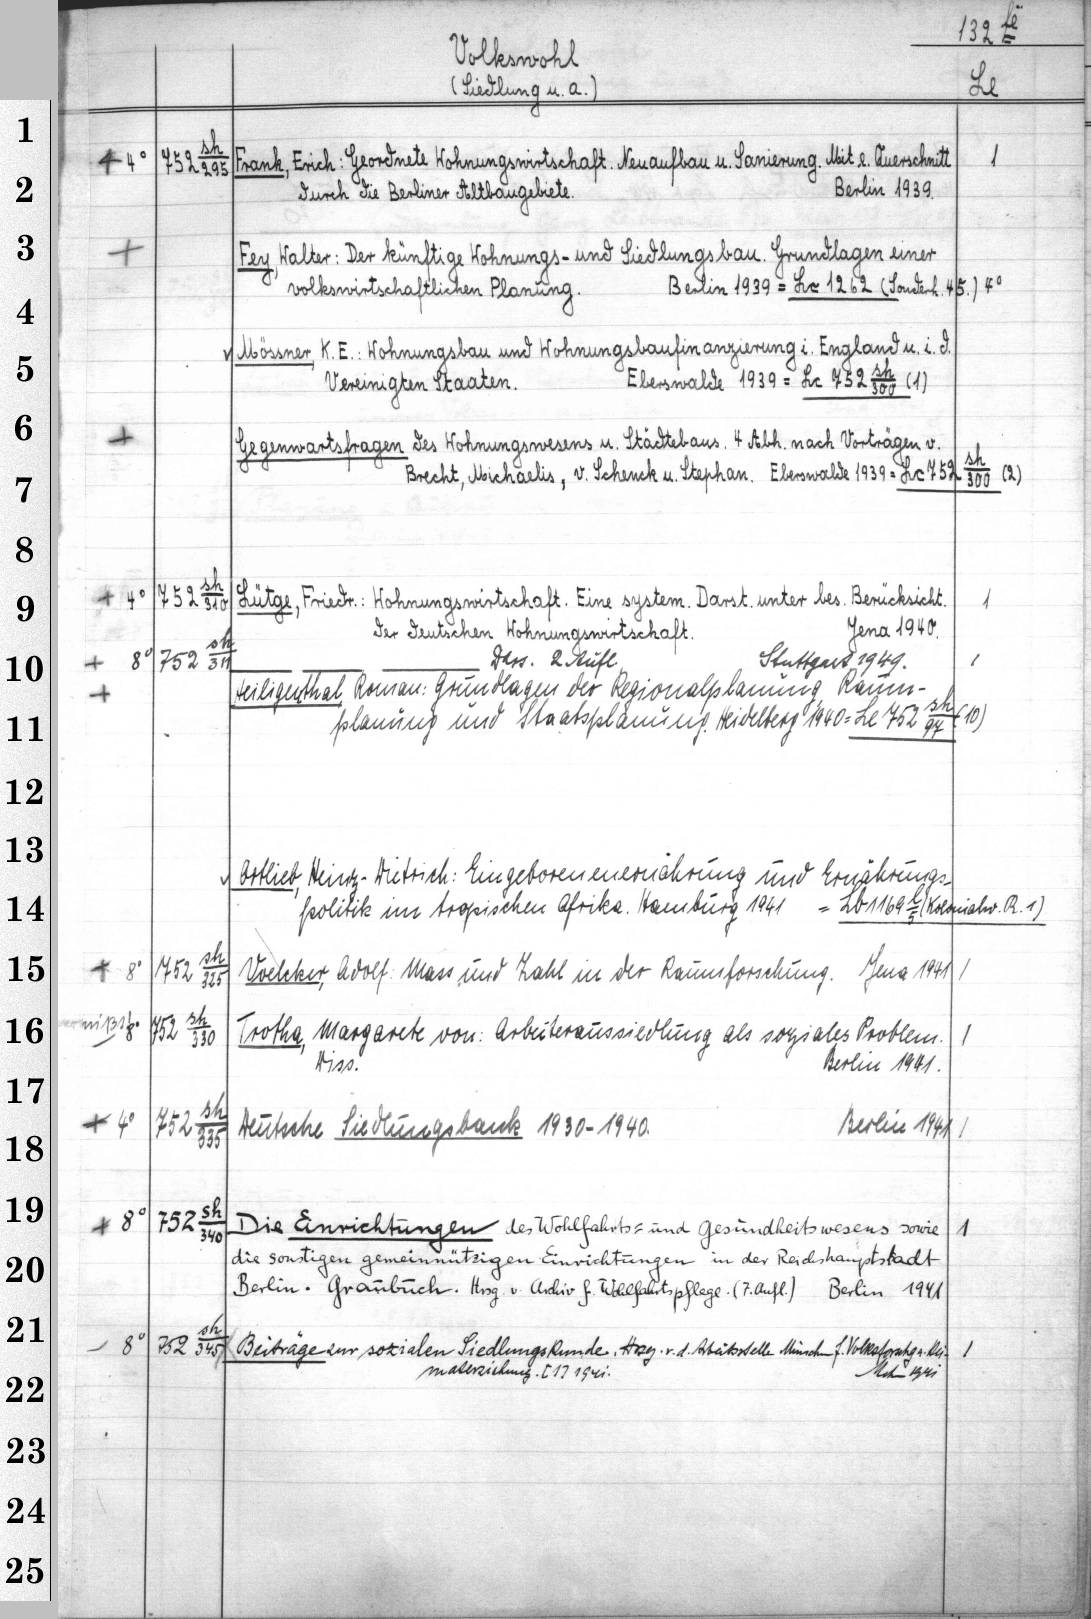 132 le
Volkswohl
(Siedlung u. a.)
Le
1
+ 4° 752 sh/295 Frank, Erich: Geordnete Wohnungswirtschaft. Neuaufbau u. Sanierung. Mit e. Querschnitt 1
2 durch die Berliner Altbaugebiete. Berlin 1939.
3 + Fey, Walter: Der künftige Wohnungs- und Siedlungsbau. Grundlagen einer
volkswirtschaftlichen Planung. Berlin 1939 = Lc 1262 (Sonderh. 45.) 4°
4
√ Mössner, K. E.: Wohnungsbau und Wohnungsbaufinanzierung i. England u. i. d.
5 Vereinigten Staaten. Eberswalde 1939 = Lc 752 sh/300 (1)
6 + Gegenwartsfragen des Wohnungswesens u. Städtebaus. 4 Abh. nach Vorträgen v.
7 Brecht, Michaelis, v. Schenck u. Stephan. Eberswalde 1939 = Lc 752 sh/300 (2)
8
9 + 4° 752 sh/310 Lütge, Friedr.: Wohnungswirtschaft. Eine system. Darst. unter bes. Berücksicht. 1
der deutschen Wohnungswirtschaft. Jena 1940.
10 + 8° 752 sh/311 Dass. 2. Aufl. Stuttgart 1949. 1
+ Heiligenthal, Roman: Grundlagen der Regionalplanung, Raum-
11 planung und Staatsplanung. Heidelberg 1940 = Le 752 sh/97 (10)
12
13
√ Ortlieb, Heinz-Dietrich: Eingeborenenernährung und Ernährungs-
14 politik im tropischen Afrika. Hamburg 1941 = Lb 1169 (Kolonialw. R. 1)
15 + 8° 752 sh/325 Voelcker, Adolf: Mass und Zahl in der Raumforschung. Jena 1941 1
16 8° 752 sh/330 Trotha, Margarete von: Arbeiteraussiedlung als soziales Problem. 1
Diss. Berlin 1941.
17
+ 4° 752 sh/335 Deutsche Siedlungsbank 1930-1940. Berlin 1941 1
18
19 + 8° 752 sh/340 Die Einrichtungen des Wohlfahrts= und Gesundheitswesens sowie 1
20 die sonstigen gemeinnützigen Einrichtungen in der Reichshauptstadt
Berlin. Graubuch. Hrsg. v. Archiv f. Wohlfahrtspflege. (7. Aufl.) Berlin 1941
21 – 8° 752 sh/345 Beiträge zur sozialen Siedlungskunde. Hrsg. v. d. Arbeitsstelle f. 1
22 [1] 1941. 1941
23
24
25